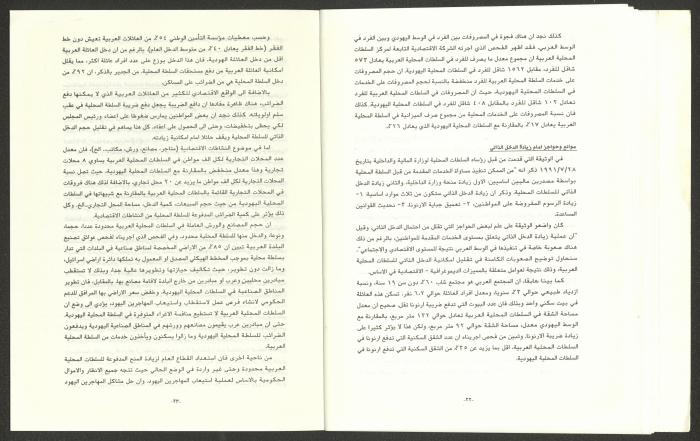 كذلك نجد ان هناك فجوة في المصروفات بين الفرد في الوسط اليهودي وبين الفرد في
الوسط العربي. فقد اظهر الفحص الذي اجرته الشركة الاقتصادية التابعة لمركز السلطات
المحلية العربية ان مجموع معدل ما يصرف للفرد في السلطات المحلية العربية يعادل ٥٧٣
شاقل للفرد مقابل ١٥٦٢ شاقل للفرد في السلطات المحلية اليهودية. ان حجم المصروفات
على خدمات السلطة المحلية العربية للفرد منخفضة بالنسبة لحجم المصروفات على الخدمات
في السلطات المحلية اليهودية، حيث ان المصروفات في السلطات المحلية العربية للفرد
تعادل ١٠٢ شاقل للفرد بالمقابل ٤٠٨ شاقل للفرد في السلطات المحلية اليهودية. كذلك
فان نسبة المصروفات على الخدمات المحلية من مجموع صرف الميزانية في السلطة المحلية
العربية يعادل ١٧٪ بالمقارنة مع السلطات المحلية اليهودية الذي يعادل ٢٦٪.
موانع وحواجز امام زيادة الدخل الذاتي
في الوثيقة التي قدمت من قبل رؤساء السلطات المحلية لوزارة المالية والداخلية بتاريخ
١٩٩١/٧/٢٨ ذكر انه "من الممكن تنفيذ مساواة الخدمات المقدمة من قبل السلطة المحلية
بواسطة مصدرين ماليين اساسيين الاول زيادة منحة وزارة الداخلية، والثاني زيادة الدخل
الذاتي للسلطات المحلية. وذكر ان زيادة الدخل الذاتي ستتكون من ثلاث موارد اساسية ١-
زيادة الرسوم المفروضة على المواطنين، ٢- تعميق جباية الارنونا، ٣- تحديث القوانين
المساعدة.
كان واضعو الوثيقة على علم ببعض الحواجز التي تقلل من احتمال الدخل الذاتي، وقيل
"ان عملية زيادة الدخل الذاتي يتعلق بمستوى الخدمات المقدمة للمواطنين، بالرغم من ذلك
هناك صعوبة خاصة في تنفيذها في الوسط العربي نتيجة للمستوى الاقتصادي والاجتماعي".
سنحاول توضيح الصعوبات الكامنة في تقليل امكانية الدخل الذاتي للسلطات المحلية
العربية، وذلك نتيجة لعوامل متعلقة بالمميزات الديموغرافية - الاقتصادية في الاساس.
كما بينا حقايقا، ان المجتمع العربي هو مجتمع شاب ٦٠٪ دون سن ١٩ سنة، ونسبة
ازدياد طبيعي حوالي ٣٪ سنوية، ومعدل افراد العائلة حوالي ٦.٧ نفر، تسكن هذه العائلة
في بيت سكني واحد وبذلك فان عدد البيوت التي تدفع ضريبة ارنونا تقل. صحيح ان معدل
مساحة الشقة في السلطات المحلية العربية تعادل حوالي ١٢٢ متر مربع، بالمقارنة مع
الوسط اليهودي معدل، مساحة الشقة حوالي ٩٢ متر مربع، ولكن هذا لا يؤثر كثيرا على
زيادة ضريبة الارنونا. وتبين من فحص اجريناه ان عدد الشقق السكنية التي تدفع ارنونا في
السلطات المحلية العربية، اقل بما يزيد عن ٢٥٪ من الشقق السكنية التي تدفع ارنونا في
السلطات المحلية اليهودية.
-٢٢-
وحسب معطيات مؤسسة التأمين الوطني ٥٤٪ من العائلات العربية تعيش دون خط
الفقر (خط الفقر يعادل ٤٠٪ من متوسط الدخل العام). بالرغم من ان دخل العائلة العربية
اقل من دخل العائلة اليهودية، فان هذا الدخل يوزع على عدد افراد عائلة اكثر، مما يقلل
امكانية العائلة العربية من دفع مستحقات السلطة المحلية، من الجدير بالذكر، ان ٩٢٪ من
دخل السلطة المحلية هي من الضرائب على المساكن.
بالاضافة الى الواقع الاقتصادي للكثير من العائلات العربية الذي لا يمكنها دفع
الضرائب، هناك ظاهرة مفادها ان دافع الضريبة يجعل دفع ضريبة السلطة المحلية في عقب
سلم اولوياته. كذلك نجد ان بعض المواطنين يمارس ضغوطا على اعضاء ورئيس المجلس
لكي يحظى بتخفيضات، وحتى الى الحصول على اعفاء. كل هذا يساهم في تقليل حجم الدخل
الذاتي للسلطة المحلية ويقف حائلا امام امكانية زيادته.
اما في موضوع النشاطات الاقتصادية (متاجر، مصانع، ورش، مكاتب، الخ)، فان معدل
عدد المحلات التجارية لكل الف مواطن في السلطات المحلية العربية يساوي ٨ محلات
تجارية وهذا معدل منخفض بالمقارنة مع السلطات المحلية اليهودية، حيث تصل نسبة
المحلات التجارية لكل الف مواطن ما يزيد عن ٢٠ محل تجاري. بالاضافة لذلك هناك فروقات
في المحلات التجارية القائمة بالسلطات المحلية العربية بالمقارنة مع شبيهاتها في السلطات
المحلية اليهودية من حيث حجم المبيعات، كمية الدخل، مساحة المحل التجاري..الخ، وكل
ذلك يؤثر على كمية الضرائب المدفوعة للسلطة المحلية من النشاطات الاقتصادية.
ان حجم المصانع والورش العاملة في السلطات المحلية العربية محدودة عددا، حجما،
ونوعا، والدخل منها للسلطة المحلية محدود. وفي الفحص الذي اجريناه لفحص عوائق تصنيع
البلدة العربية تبين ان ٨٥٪ من الاراضي المخصصة لمناطق صناعية في البلدات التي تدار
بسلطة محلية بموجب المخطط الهيكلي المصدق او المعمول به تملكها دائرة اراضي اسرائيل،
وما زالت دون تطوير، حيث تكاليف حيازتها وتطويرها عالية جدا، وبذلك لا تستقطب
مبادرين محليين وعرب او مبادرين من خارج البلدة لاقامة مصانع بها. بالمقابل، فان تطوير
المناطق الصناعية في السلطات المحلية اليهودية، وخفض سعر الاراضي بها المرافق للدعم
الحكومي لانشاء فرص عمل لاستقطاب واستيعاب المهاجرين اليهود، يؤدي الى وضع ان
السلطات المحلية العربية لا تستطيع منافسة الاغراء المتوفرة في السلطات المحلية اليهودية.
حتى ان مبادرين عرب يقيمون مصانعهم وورشهم في المناطق الصناعية اليهودية ويدفعون
الضرائب للسلطات المحلية اليهودية وما زالوا يسكنون ويأخذون خدمات من السلطة المحلية
العربية.
من ناحية اخرى فان استعداد القطاع العام لزيادة المنح المدفوعة للسلطات المحلية
العربية محدودة وحتى غير واردة في الوضع الحالي حيث تتجه جميع الانظار والاموال
الحكومية بالاساس لعملية استيعاب المهاجرين اليهود. وان حل مشاكل المهاجرين اليهود
-٢٣-